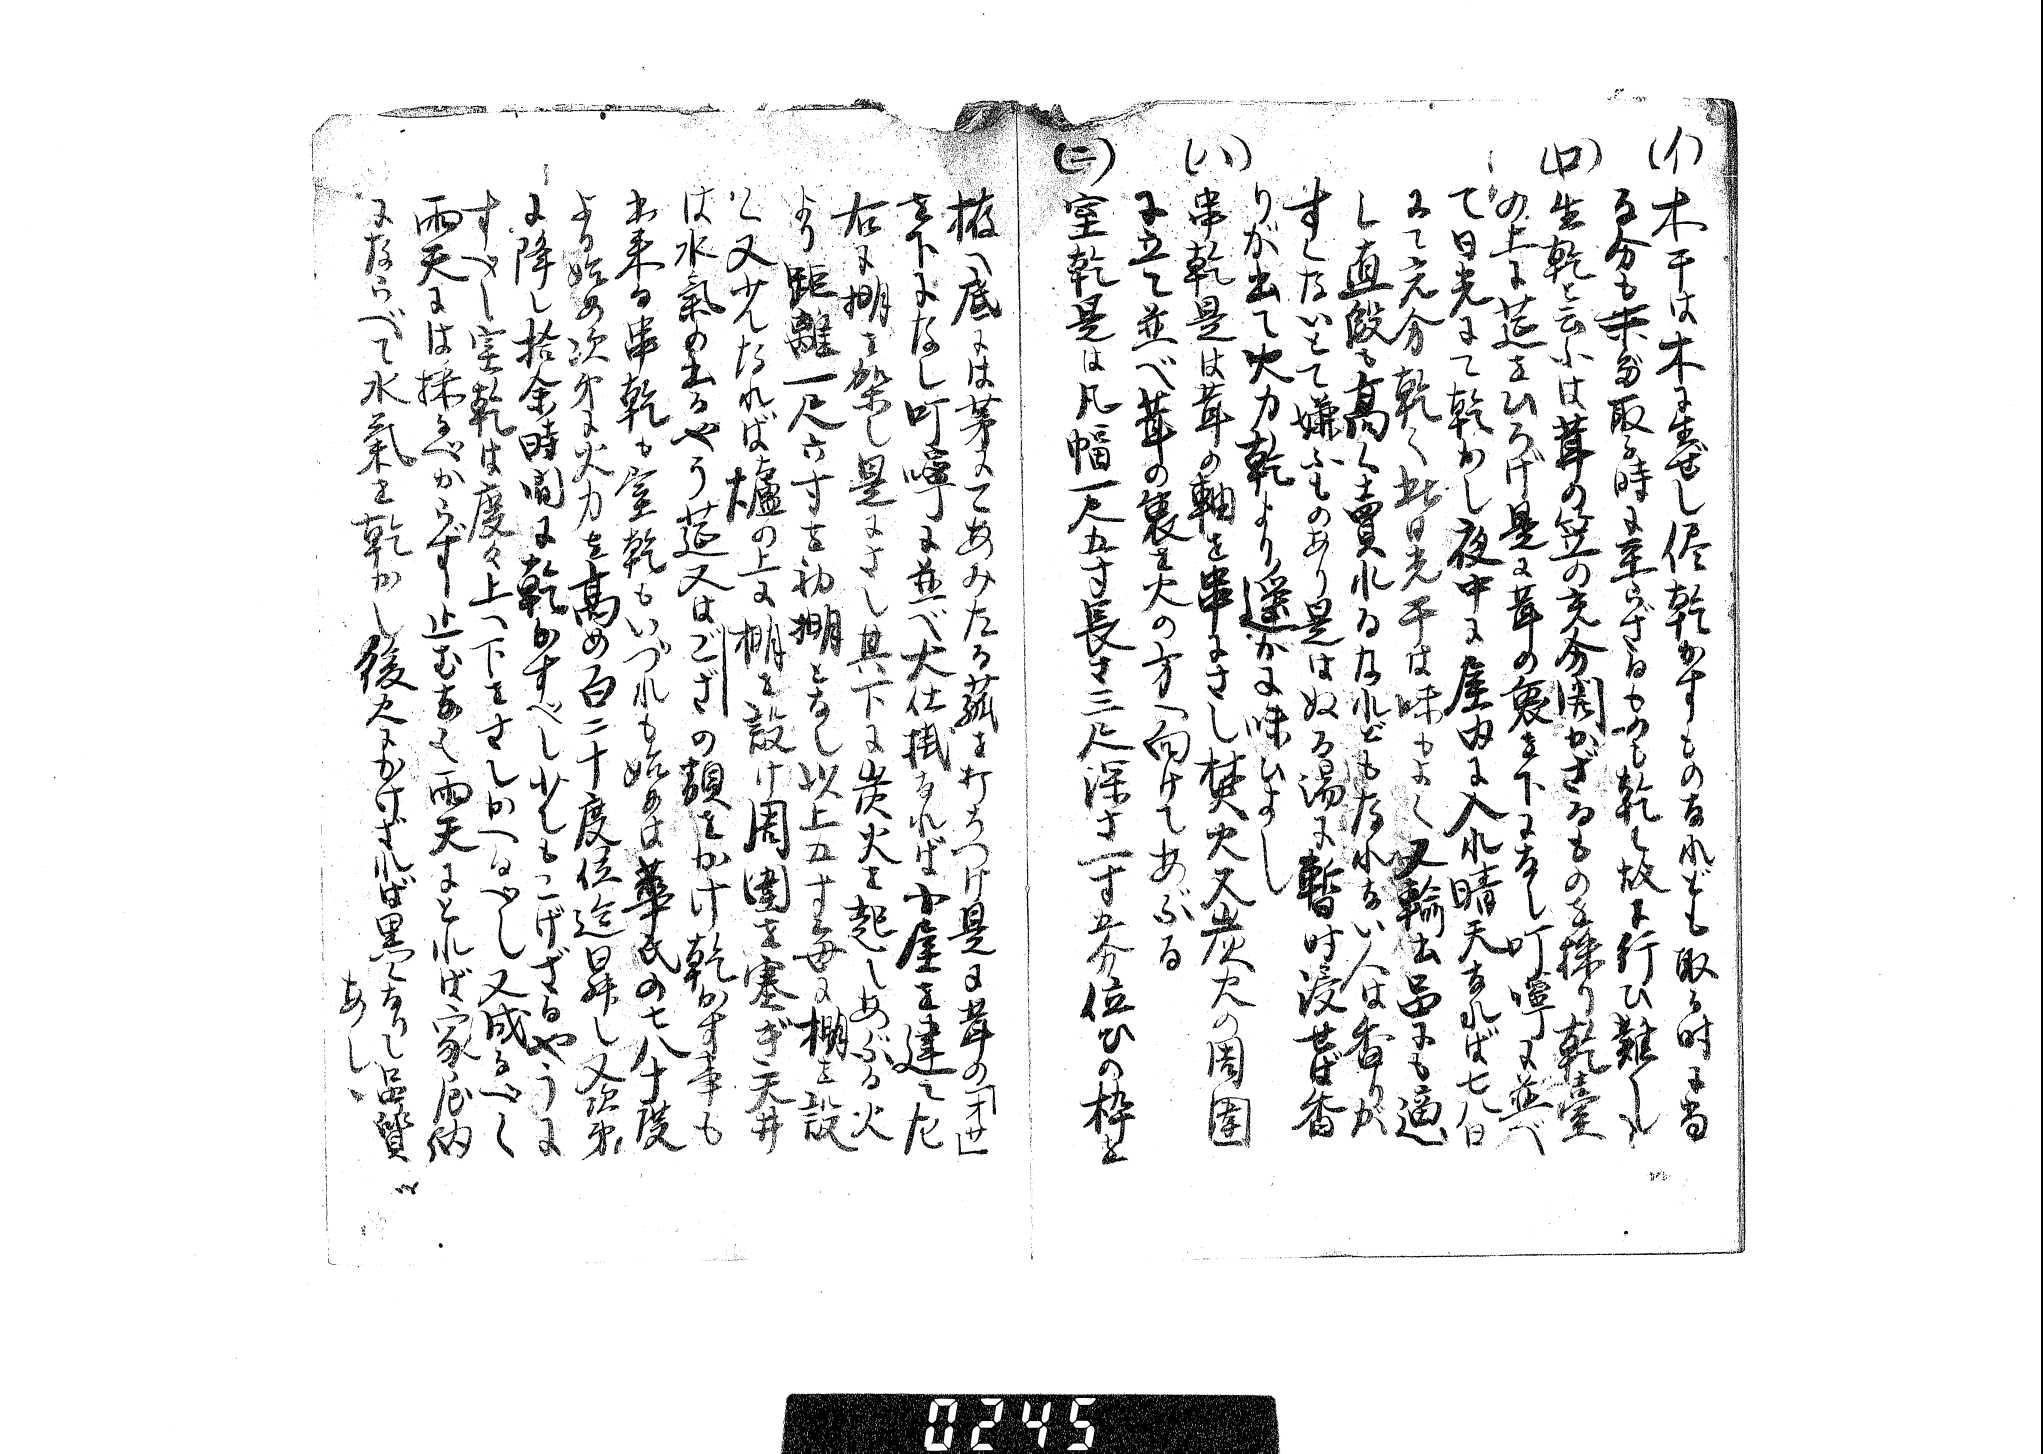 (イ)木干は木に生ぜし儘乾かすものなれども取る時に当
る分も未だ取る時に至らざるものも乾く故に行ひ難し
(ロ)生乾と云ふは茸の笠の充分開かざるものを採り乾臺
の上に莚をひろげ是に茸の裏を下になし叮嚀に並べ
て日光にて乾かし夜中に屋内に入れ晴天なれば七八日
にて充分乾く此日光干は味もよく又輸出品にも適
し直段も高く賣れるなれどもなれない人は香りが
すくないとて嫌ふものあり是はぬる湯に暫時浸せば香
りが出て火力乾より遥かに味ひよし
(ハ)串乾是は茸の軸を串にさし焚火又炭火の周圍
に立て並べ茸の裏を火の方へ向けてあぶる
(ニ)室乾是は凡幅一尺五寸長さ三尺深さ一寸五分位ひの枠を
拵へ底には茅にてあみたる菰を打ちつけ是に茸の
を下になし叮嚀に並べ大仕掛なれば小屋を建て左
右に棚を架し是にさし其下に炭火を起しあぶる火
より距離一尺六寸を初棚となし以上五寸毎に棚を設
く又少しなれば爐の上に棚を設け周圍を塞ぎ天井
は水氣の出るやう莚又はござの類をかけ乾かす事も
出来る串乾も室乾もいづれも始めは華氏の七八十度
より始め次第に火力を高め百二十度位迄昇し又次第
に降し拾余時間に乾かすべし少しもこげざるやうに
すべし室乾は度々上へ下をさしかへるべし又成るべく
雨天には採るべからず止むなく雨天にとれば家屋内
にならべて水氣を乾かし後火にかけざれば黒くなりし品質
あしし
0245